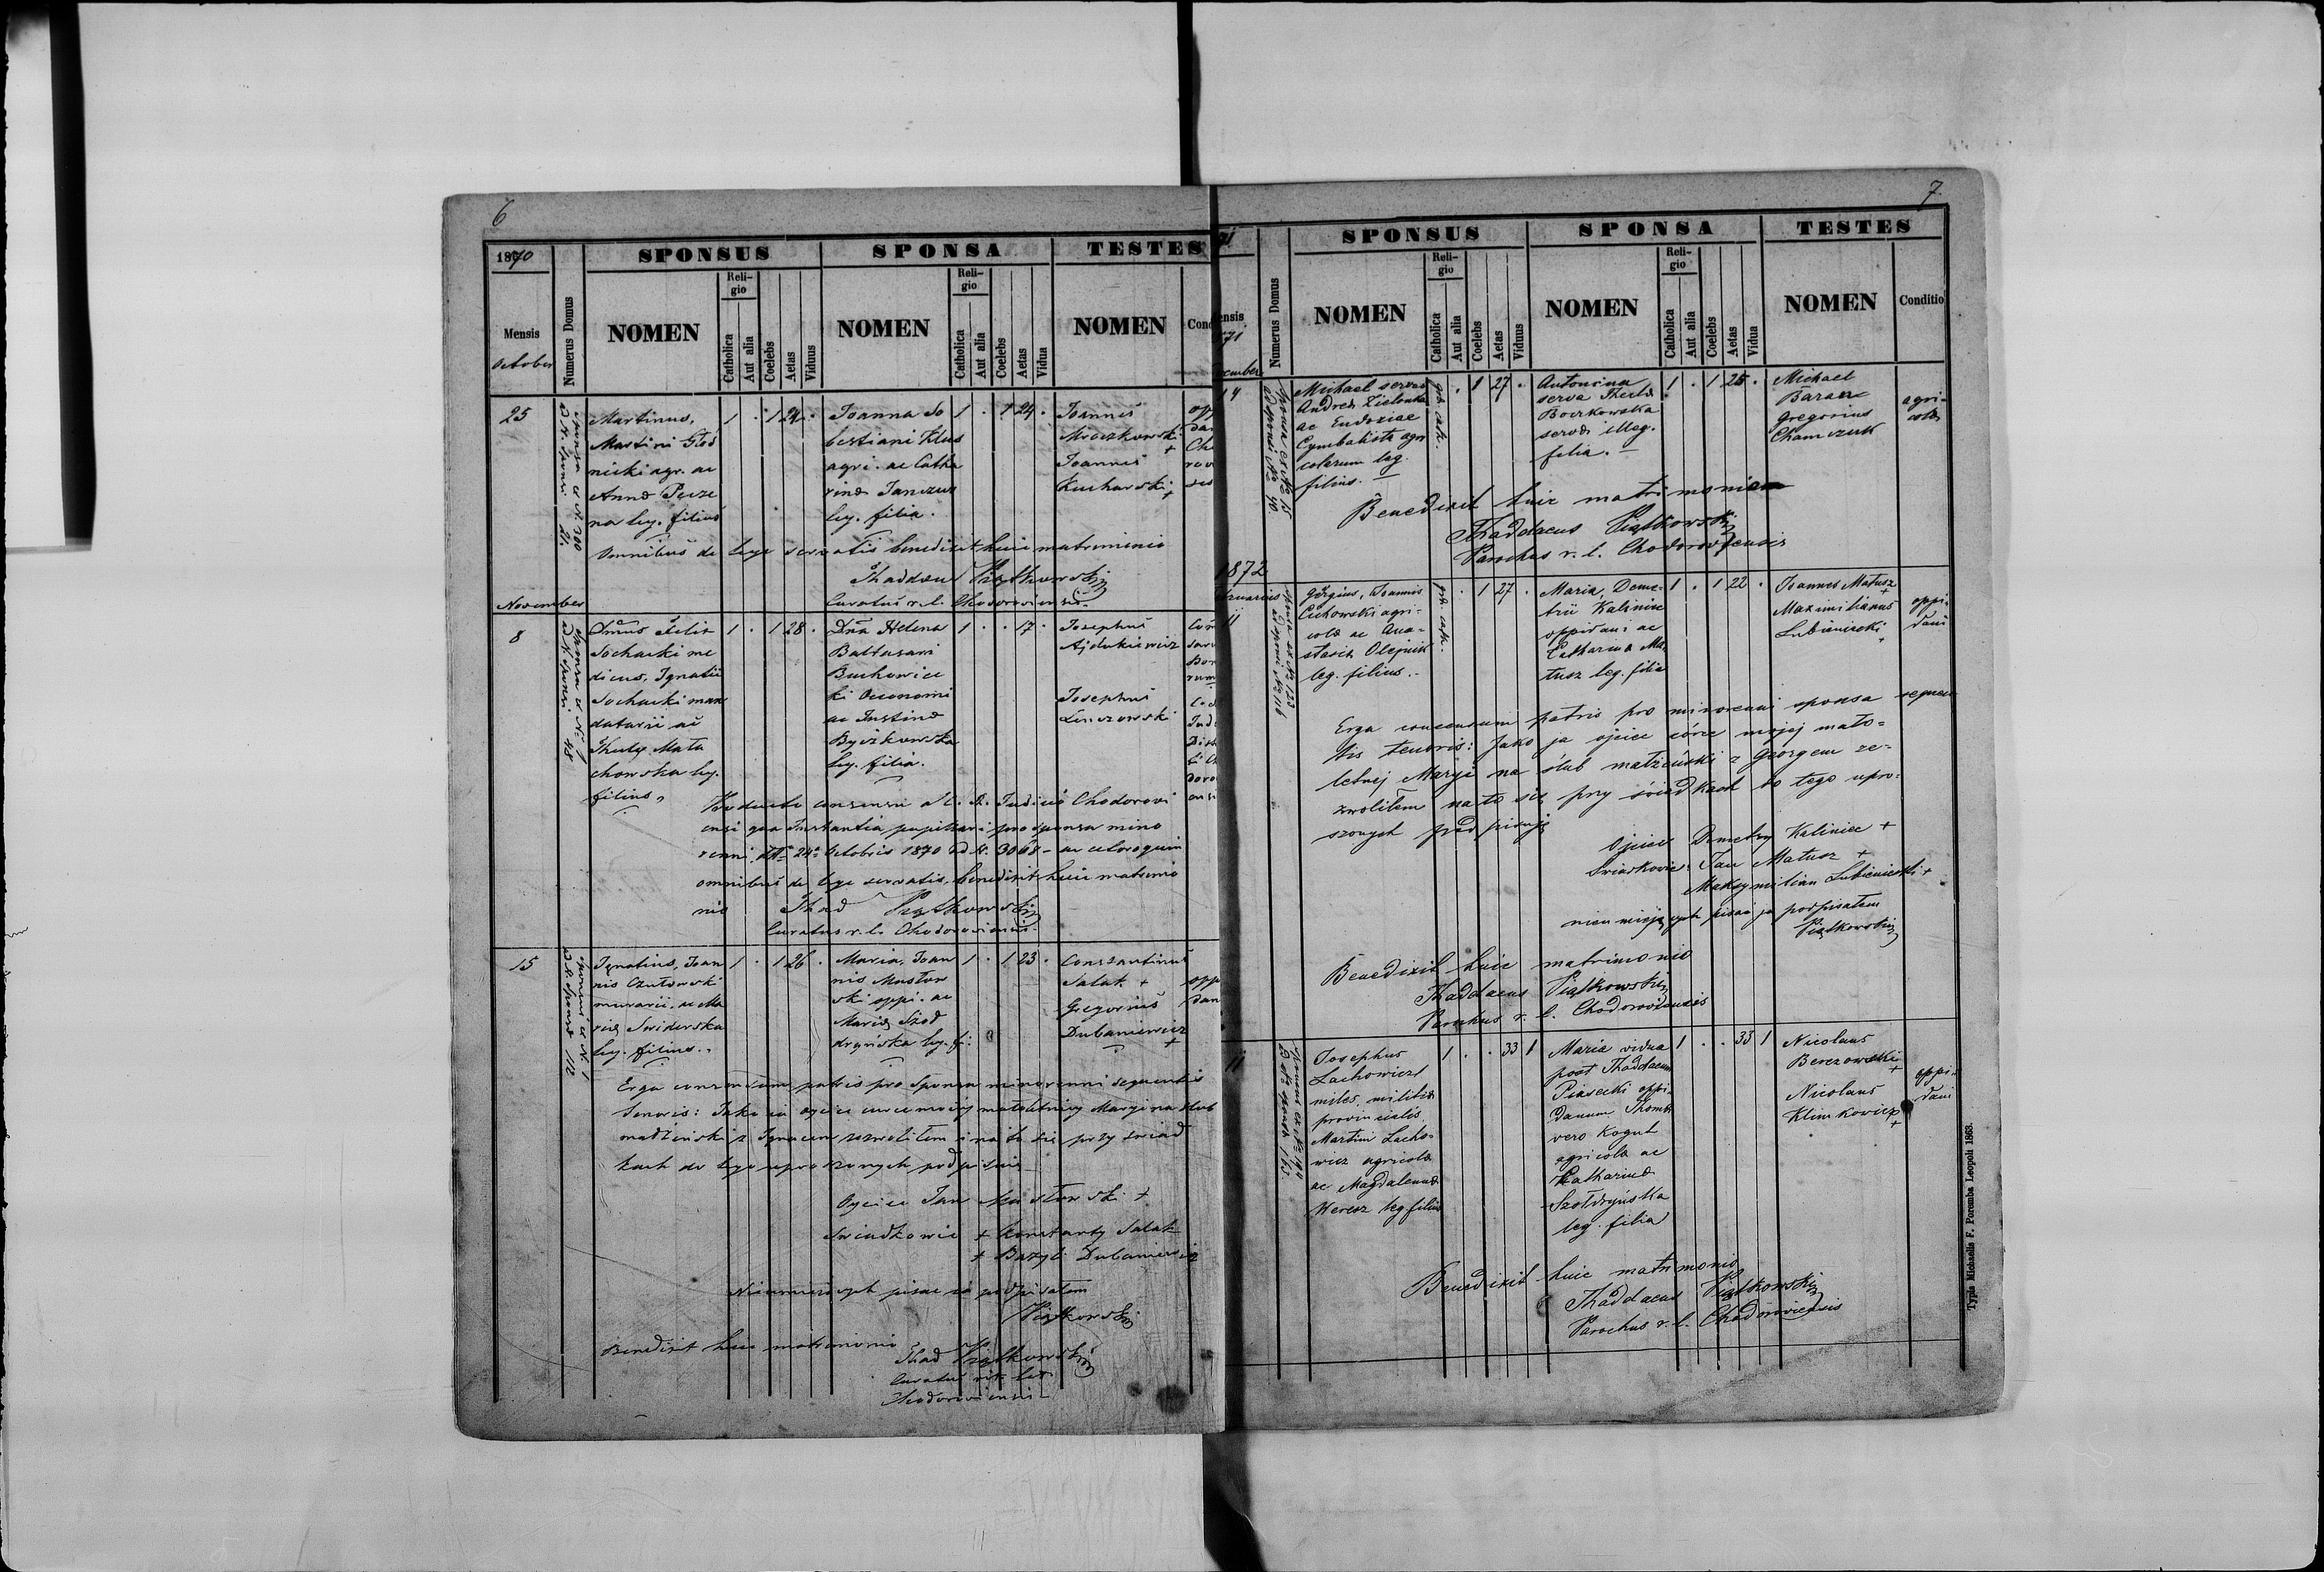 6
1870
SPONSUS
SPONSA
TESTES
Mensis
October
Numerus Domus
NOMEN
Religio
Catholica
Aut alia
Coelebs
Aetas
Viduus
NOMEN
Religio
Catholica
Aut alia
Coelebs
Aetas
Vidua
NOMEN
Cond
25
Martinus,
Martini
nicki agr. ac
Annæ
na leg. filius
1 . 1 24 .
Joanna Se
bestiani Klus
agri. ac Catha
rinæ Janczur
leg. filia.
1 . 1 24 .
Joannes
Mroczkowski
+
Joannes
Kucharski
+
Omnibus de lege servatis benedixit huic matrimonio
Thaddæus Piątkowski
Curatus r. l. Chodoroviensis
November
8
Felix
Sochacki me
dicus, Ignatii
Sochacki man
datarii ac
Theklæ Mała
chowska leg.
filius
1 . 1 28 .
Dña Helena
Baltasari
Buchowiec
ki Oeconomi
ac Justinæ
Byczkowska
leg. filia.
1 . . 17 .
Josephus
Ajdukiewicz
Josephus
Linczowski
consensu a C. R. Judicio Chodorovi
ensi qua Instantia pupillari pro sponsa mino
renni 24 Octobris 1870 ad N. 3068 ac ceteroquin
omnibus de lege servatis, benedixit huic matrimo
nio Thad Piątkowski
Curatus r. l. Chodoroviensis
15
Ignatius, Joan
nis
murarii, ac Ma
riæ Swiderska
leg. filius.
1 . 1 26 .
Maria, Joan
nis Masłow
ski oppi. ac
Mariæ Szoł
dryńska leg. fi:
1 . 1 23 .
Constantinus
Salak +
Gregorius
Dubaniewicz
+
Erga consensum patris pro sponsa minorenni sequentis
tenoris: Jako ja ojciec córce mojéj małoletniéj Maryi na slub
małżeński z Ignacem zezwoliłem i na to się przy swiad
kach do tego uproszonych podpisuię
Ojciec Jan Masłowski +
Swiadkowie + Konstanty Salak
+ Bazyli Dubaniewicz
Nieumiejących pisać ja podpisałem
Piątkowski
Benedixit huic matrimonio
Thad Piątkowski
Curatus rit. lat
Chodoroviensis
7
SPONSUS
SPONSA
TESTES
Numerus Domus
NOMEN
Religio
Catholica
Aut alia
Coelebs
Aetas
Viduus
NOMEN
Religio
Catholica
Aut alia
Coelebs
Aetas
Vidua
NOMEN
Conditio
14
Michael servus
Andreæ Zielonka
ac Eudoxiae
Cymbalista agri
colarum leg.
filius.
. 1 27 .
Antonina
serva Theclæ
Boczkowska
servæ illeg.
filia.
1 . 1 25 .
Michael
Baran
Gregorius
Chamczuk
agri-
colæ
Benedixit huic matrimonio
Thaddaeus Piątkowski
Parochus r. l. Chodoroviensis
1872
11
Georgius, Joannis
Cichowski agri-
colæ ac Ana-
stasiæ Olejnik
leg. filius.
. 1 27 .
Maria, Deme-
trii Kaliniec
oppidani ac
Catharinæ Ma
tusz leg. filia
1 . 1 22 .
Joannes Matusz
+
Maximilianus
Lubieniecki
+
oppi-
dani
Erga consensum patris pro minorenni sponsa sequen
tis tenoris: Jako ja ojciec córce mojej mało-
letniej Maryi na ślub małżeński z Georgem ze-
zwoliłem na to się przy świadkach do tego upro-
szonych podpisuję
Ojciec Dmetry Kaliniec +
Swiadkowie: Jan Matusz +
Maksymilian Lubieniecki +
nieumiejących pisać ja podpisałem
Piątkowski
Benedixit huic matrimonio
Thaddaeus Piątkowski
Parochus r. l. Chodoroviensis
11
Josephus
Lachowicz
miles militiæ
provincialis
Martini Lacho-
wicz agricolæ
ac Magdalenæ
Kerecz leg filius
1 . . 33 1
Maria vidua
post Thaddaeum
Piasecki oppi-
danum Thomæ
vero Kogut
agricolæ ac
Catharinæ
Szołdryńska
leg. filia
1 . . 33 1
Nicolaus
Berezowski
+
Nicolaus
Klimkowicz
+
oppi-
dani
Benedixit huic matrimonio
Thaddaeus Piątkowski
Parochus r. l. Chodoroviensis
Typis Michaelis F. Poremba Leopoli 1863.